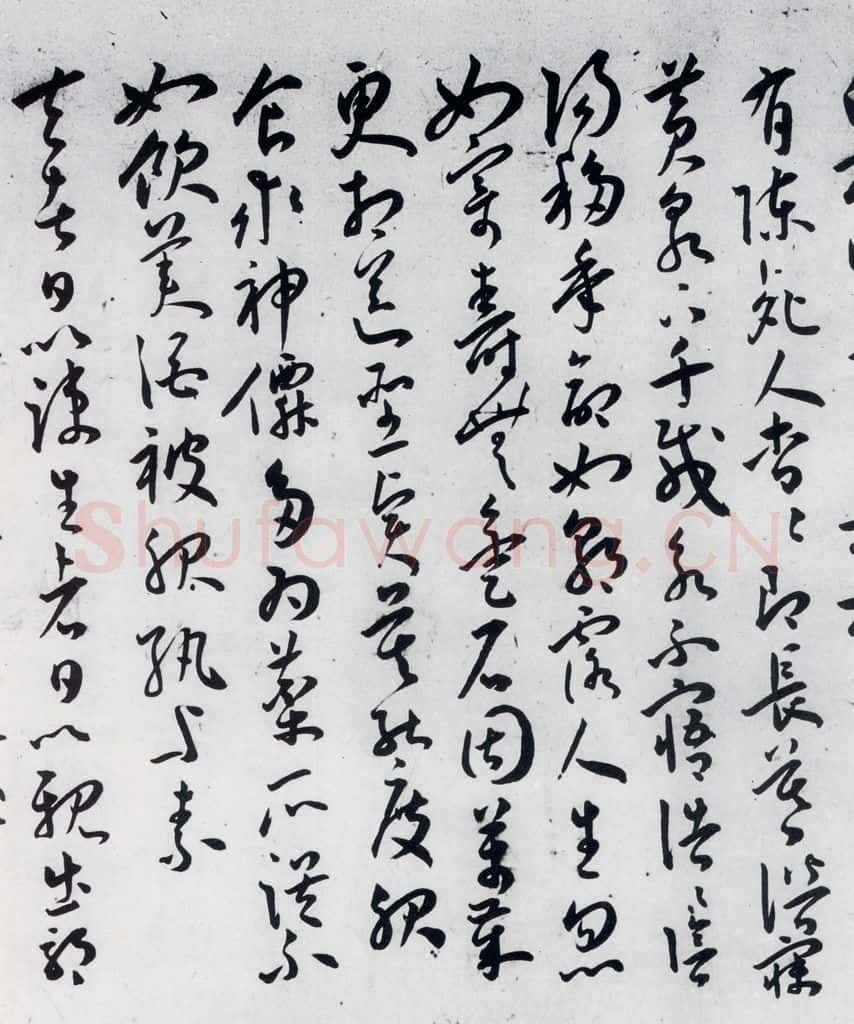 有陳死人杳〻即長暮潛寐
黃泉下千載永不寤浩〻陰
陽移年命如朝露人生忽
如寄壽無金石固萬歲
更相送聖賢莫能度服
食求神僊多為藥所誤不
如飲美酒被服紈与素
去者日以疎生者日以親出郭
Shufawang.CN